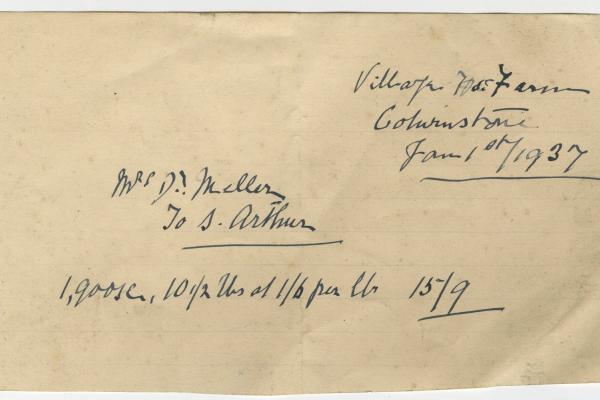 Village Ho: Farm
Colwinstone
Jan 1st/1937
Mrs Dr. Meller
To S. Arthur
1, goose, 10 1/2 lbs at 1/6 per lb 15/9